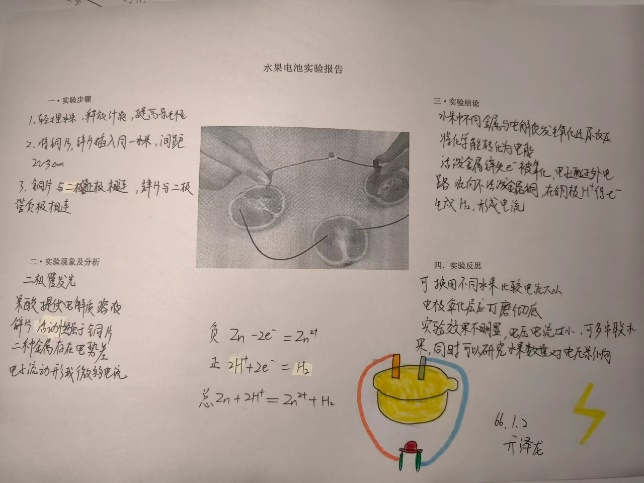 水果电池实验报告
一·实验步骤
1、轻捏水果,释放汁液,提高导电性
2、将铜片,锌片插入同一水果,间距
2~3cm
3、铜片与二极正极相连,锌片与二极
管负极相连
二·实验现象及分析
二极管发光
果酸提供电解质溶液
锌片活动性强于铜片
二种金属存在电势差
电子流动形成微弱电流
负 Zn-2e⁻=Zn²⁺
正 2H⁺+2e⁻=H₂
总 Zn+2H⁺=Zn²⁺+H₂
三·实验结论
水果中不同金属与电解质发生氧化还原反应
将化学能转化为电能
活泼金属锌失e⁻被氧化,电子通过外电
路流向不活泼金属铜,在铜极H⁺得e⁻
生成H₂,形成电流
四、实验反思
可换用不同水果比较电流大小
电极氧化层应打磨彻底
实验效果不明显,电压电流过小,可多串联水
果,同时可以研究水果数量对电压影响
66.1.2